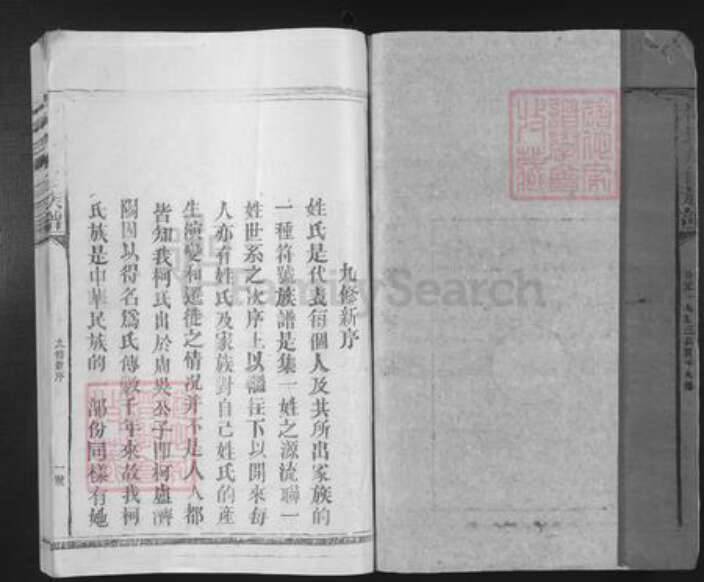 九修新序
姓氏是代表每個人及其所出家族的
一種符號族譜是集一姓之源流聯一
姓世系之次序上以溯往下以開來每
人亦有姓氏及家族對自己姓氏的產
生演變和遷徙之情况并不是人人都
皆知我柯氏出於
公子即柯盧濟
陽因以得名爲氏傳數千年來故我柯
氏族是中華民族的
部份同樣有她
族譜
九修新序
一號
FamilySearch